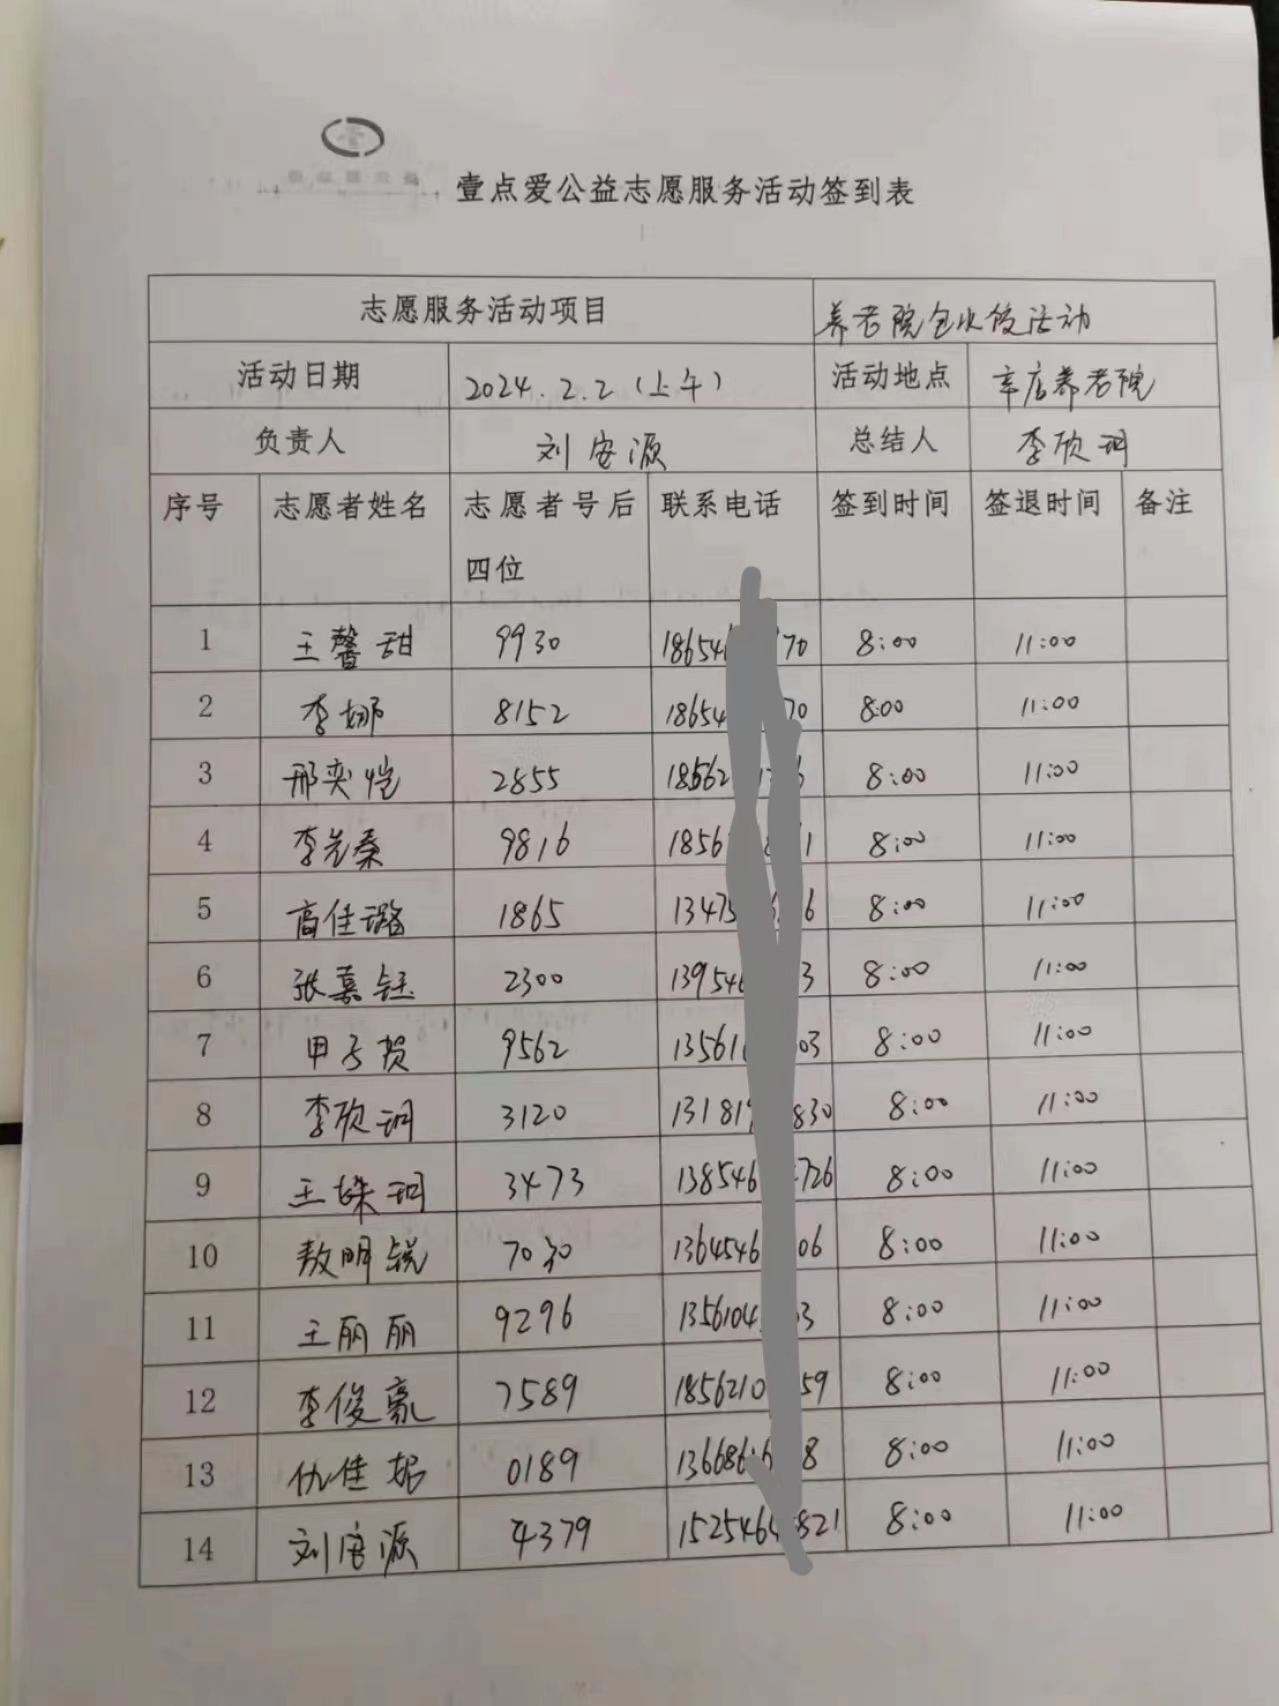 壹点爱公益志愿服务活动签到表
志愿服务活动项目 养老院包水饺活动
活动日期 2024.2.2(上午) 活动地点 辛店养老院
负责人 刘安源 总结人 李欣珂
序号 志愿者姓名 志愿者号后四位 联系电话 签到时间 签退时间 备注
1 王馨甜 9930 18654 70 8:00 11:00
2 李娜 8152 18654 70 8:00 11:00
3 邢奕恺 2855 18562 6 8:00 11:00
4 李先秦 9816 1856 1 8:00 11:00
5 高佳璐 1865 13475 6 8:00 11:00
6 张嘉钰 2300 13954 3 8:00 11:00
7 甲子贺 9562 13561 03 8:00 11:00
8 李欣珂 3120 13181 830 8:00 11:00
9 王姝珂 3473 138546 726 8:00 11:00
10 敖明锐 7030 1364546 06 8:00 11:00
11 王丽丽 9296 1356104 3 8:00 11:00
12 李俊豪 7589 1856210 59 8:00 11:00
13 仇佳妮 0189 136686 8 8:00 11:00
14 刘安源 4379 1525464 821 8:00 11:00